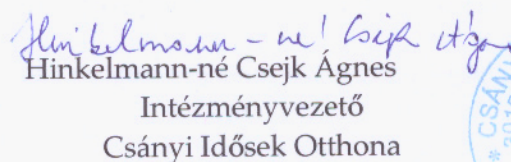 Hinkelmann-né Csejk Ágnes
Hinkelmann-né Csejk Ágnes
Intézményvezető
Csányi Idősek Otthona
* CSÁNYI